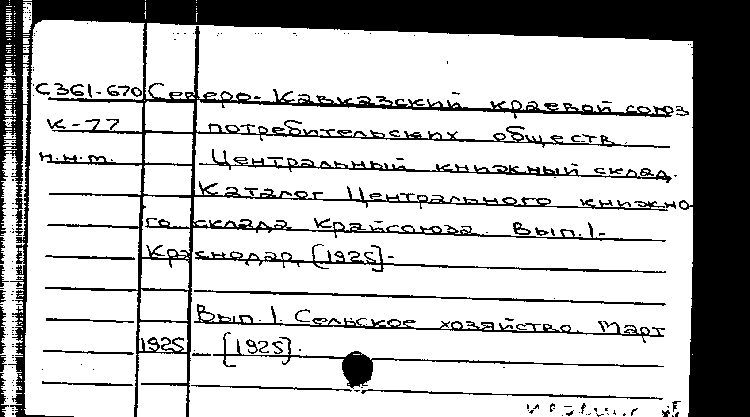 С361-670 Северо-Кавказский краевой союз
К-77 потребительских обществ.
н.м.т. Центральный книжный склад.
Каталог Центрального книжно-
го склада Крайсоюза. Вып.1-
Краснодар, [1925]-
Вып.1. Сельское хозяйство. Март
1925 [1925].